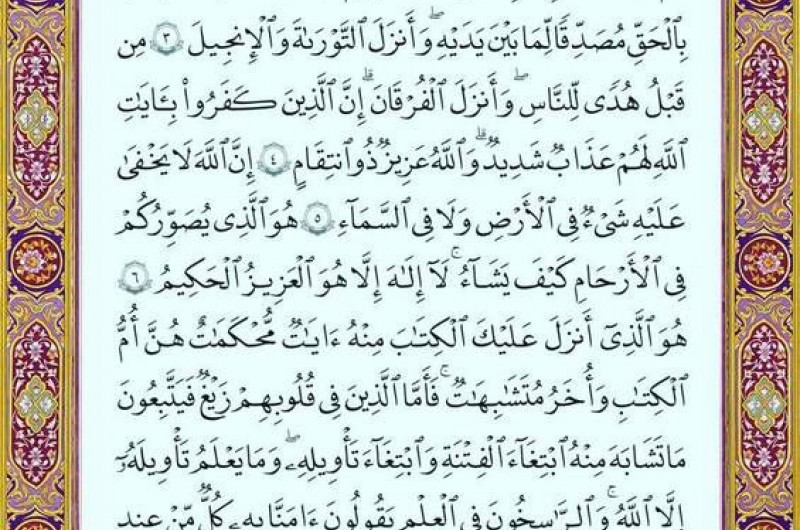 بِٱلۡحَقِّ مُصَدِّقٗا لِّمَا بَيۡنَ يَدَيۡهِۖ وَأَنزَلَ ٱلتَّوۡرَىٰةَ وَٱلۡإِنجِيلَ ٣ مِن
قَبۡلُ هُدٗى لِّلنَّاسِۖ وَأَنزَلَ ٱلۡفُرۡقَانَۗ إِنَّ ٱلَّذِينَ كَفَرُواْ بِـَٔايَٰتِ
ٱللَّهِ لَهُمۡ عَذَابٞ شَدِيدٞۗ وَٱللَّهُ عَزِيزٞ ذُو ٱنتِقَامٍ ٤ إِنَّ ٱللَّهَ لَا يَخۡفَىٰ
عَلَيۡهِ شَيۡءٞ فِي ٱلۡأَرۡضِ وَلَا فِي ٱلسَّمَآءِ ٥ هُوَ ٱلَّذِي يُصَوِّرُكُمۡ
فِي ٱلۡأَرۡحَامِ كَيۡفَ يَشَآءُۚ لَآ إِلَٰهَ إِلَّا هُوَ ٱلۡعَزِيزُ ٱلۡحَكِيمُ ٦
هُوَ ٱلَّذِيٓ أَنزَلَ عَلَيۡكَ ٱلۡكِتَٰبَ مِنۡهُ ءَايَٰتٞ مُّحۡكَمَٰتٌ هُنَّ أُمُّ
ٱلۡكِتَٰبِ وَأُخَرُ مُتَشَٰبِهَٰتٞۖ فَأَمَّا ٱلَّذِينَ فِي قُلُوبِهِمۡ زَيۡغٞ فَيَتَّبِعُونَ
مَا تَشَٰبَهَ مِنۡهُ ٱبۡتِغَآءَ ٱلۡفِتۡنَةِ وَٱبۡتِغَآءَ تَأۡوِيلِهِۦۖ وَمَا يَعۡلَمُ تَأۡوِيلَهُۥٓ
إِلَّا ٱللَّهُۗ وَٱلرَّٰسِخُونَ فِي ٱلۡعِلۡمِ يَقُولُونَ ءَامَنَّا بِهِۦ كُلّٞ مِّنۡ عِندِ